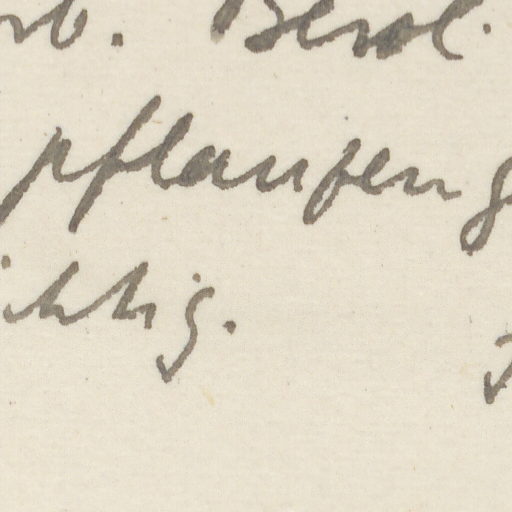 rb. Berol.
pflanzen g
ichtig.